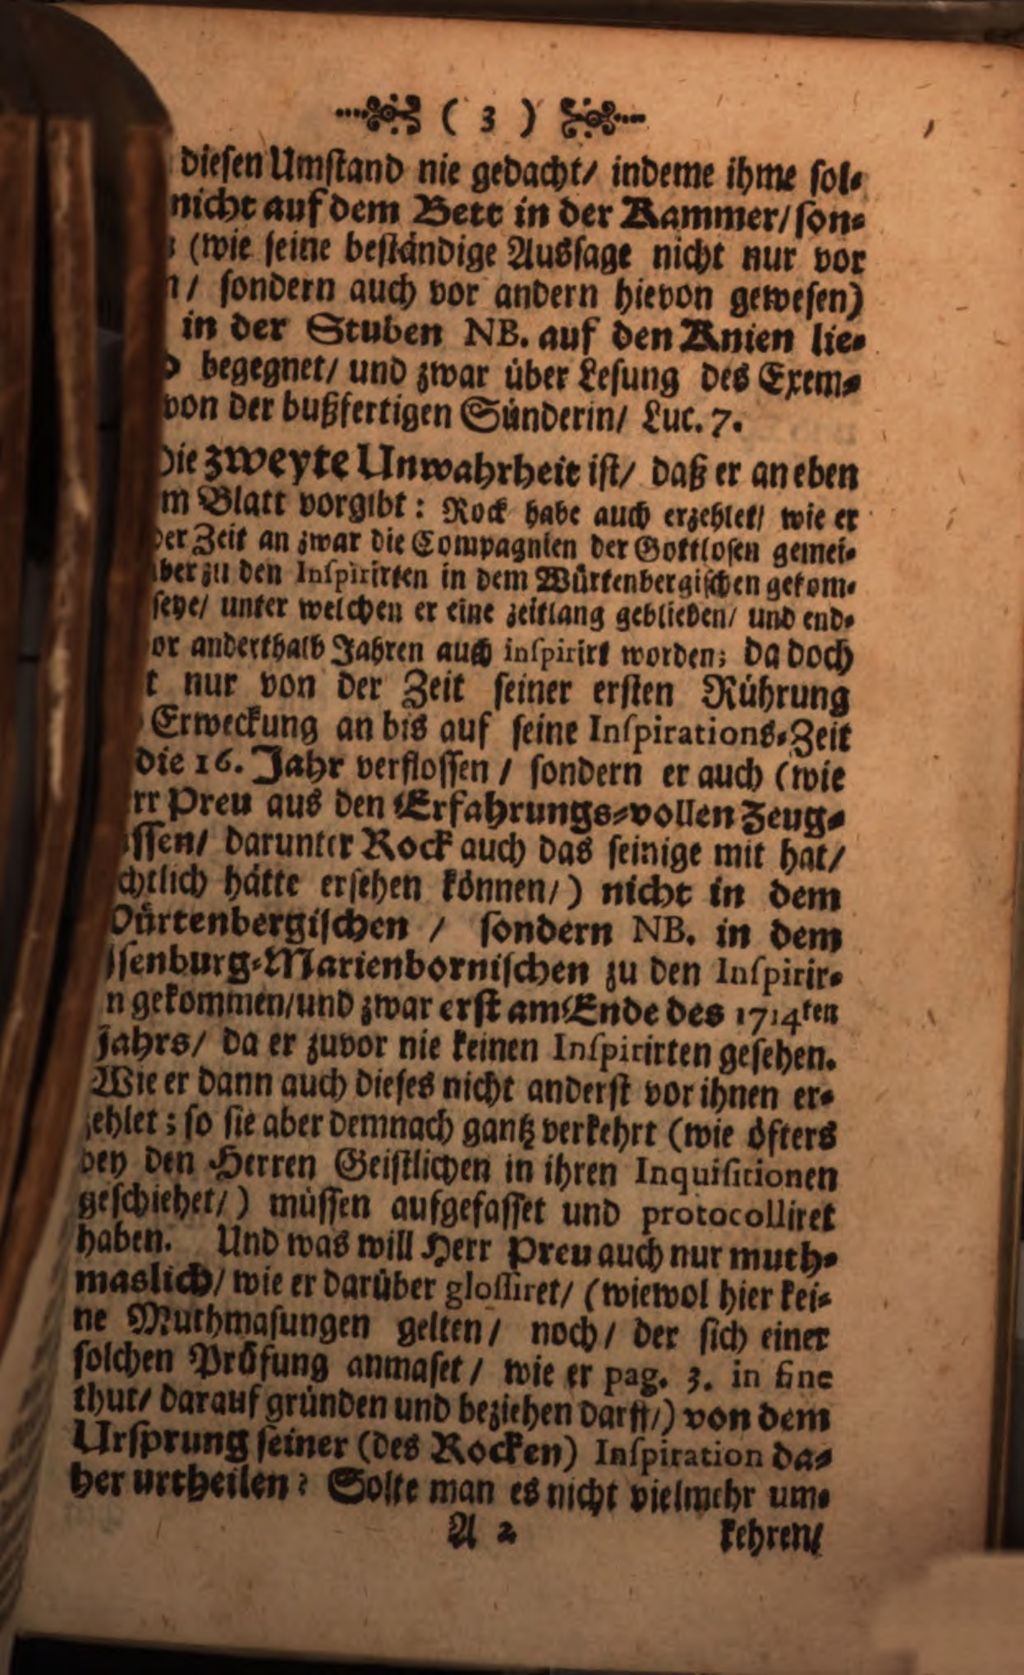 ( 3 )
diesen Umstand nie gedacht/ indeme ihme sol⸗
nicht auf dem Bett in der Kammer/ son⸗
(wie seine beständige Aussage nicht nur vor
/ sondern auch vor andern hievon gewesen)
in der Stuben NB. auf den Knien lie⸗
begegnet/ und zwar über Lesung des Exem⸗
von der bußfertigen Sünderin/ Luc. 7.
Die zweyte Unwahrheit ist/ daß er an eben
m Blatt vorgibt: Rock habe auch erzehlet/ wie er
der Zeit an zwar die Compagnien der Gottlosen gemei⸗
aber zu den Inspirirten in dem Würtenbergischen gekom⸗
seye/ unter welchen er eine zeitlang geblieben/ und end⸗
or anderthalb Jahren auch inspirirt worden; da doch
t nur von der Zeit seiner ersten Rührung
Erweckung an bis auf seine Inspirations⸗Zeit
die 16. Jahr verflossen / sondern er auch (wie
rr Preu aus den Erfahrungs⸗vollen Zeug⸗
ssen/ darunter Rock auch das seinige mit hat/
chtlich hätte ersehen können/) nicht in dem
Würtenbergischen / sondern NB. in dem
Isenburg⸗Marienbornischen zu den Inspirir⸗
n gekommen/ und zwar erst am Ende des 1714ten
Jahrs/ da er zuvor nie keinen Inspirirten gesehen.
Wie er dann auch dieses nicht anderst vor ihnen er⸗
zehlet; so sie aber demnach gantz verkehrt (wie öfters
bey den Herren Geistlichen in ihren Inquisitionen
geschiehet/) müssen aufgefasset und protocolliret
haben. Und was will Herr Preu auch nur muth⸗
maslich/ wie er darüber glossiret/ (wiewol hier kei⸗
ne Muthmasungen gelten/ noch/ der sich einer
solchen Prüfung anmaset/ wie er pag. 3. in fine
thut/ darauf gründen und beziehen darff/) von dem
Ursprung seiner (des Rocken) Inspiration da⸗
her urtheilen? Solte man es nicht vielmehr um⸗
A 2 kehren/